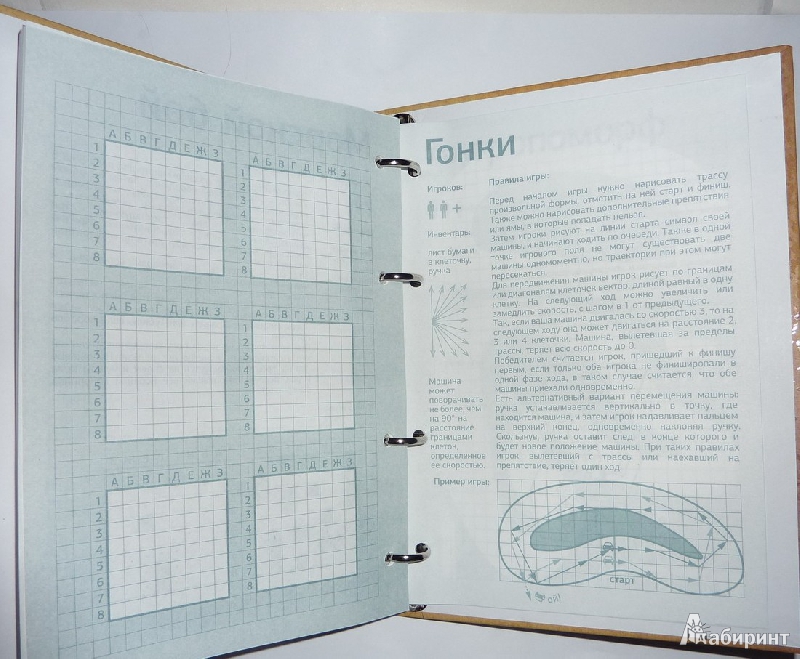 А Б В Г Д Е Ж З
1
2
3
4
5
6
7
8
А Б В Г Д Е Ж З
1
2
3
4
5
6
7
8
А Б В Г Д Е Ж З
1
2
3
4
5
6
7
8
А Б В Г Д Е Ж З
1
2
3
4
5
6
7
8
А Б В Г Д Е Ж З
1
2
3
4
5
6
7
8
А Б В Г Д Е Ж З
1
2
3
4
5
6
7
8
Гонки
Игроков:
+
Инвентарь:
лист бумаги
в клеточку,
ручка
Машина
может
поворачивать
не более, чем
на 90° на
расстояние
границами
клеток,
определенное
ее скоростью.
Правила игры:
Перед началом игры нужно нарисовать трассу
произвольной формы, отметить на ней старт и финиш.
Также можно нарисовать дополнительные препятствия
или ямы, в которые попадать нельзя.
Затем игроки рисуют на линии старта символ своей
машины, и начинают ходить по очереди. Также в одной
точке игрового поля не могут существовать две
машины одномоментно, но траектории при этом могут
пересекаться.
Для передвижения машины игрок рисует по границам
или диагоналям клеточек вектор, длиной равный в одну
клетку. На следующий ход можно увеличить или
замедлить скорость, с шагом в 1 от предыдущего.
Так, если ваша машина двигалась со скоростью 3, то на
следующем ходу она может двигаться на расстояние 2,
3 или 4 клеточки. Машина, вылетевшая за пределы
трассы теряет всю скорость до 0.
Победителем считается игрок, пришедший к финишу
первым, если только оба игрока не финишировали в
одной фазе хода, в таком случае считается, что обе
машины приехали одновременно.
Есть альтернативный вариант перемещения машины:
ручка устанавливается вертикально в точку, где
находится машина, и затем игрок надавливает пальцем
на верхний конец, одновременно наклоняя ручку.
Скользнув, ручка оставит след, в конце которого и
будет новое положение машины. При таких правилах
игрок, вылетевший с трассы или наехавший на
препятствие, теряет один ход.
Пример игры:
старт
Лабиринт